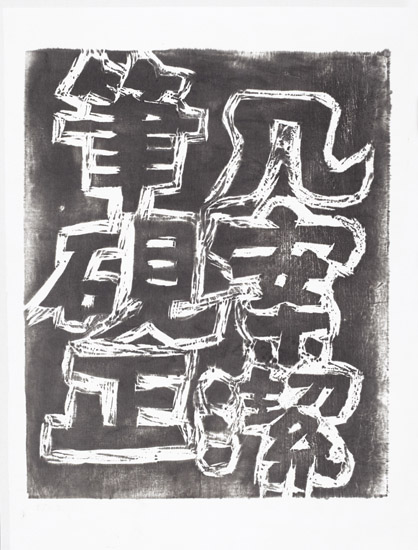 几案潔
筆硯正